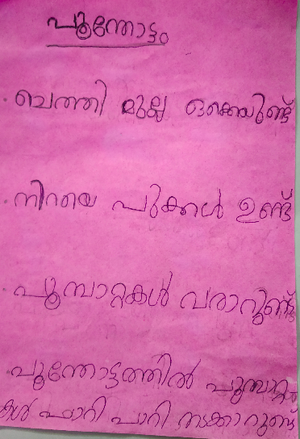 പൂന്തോട്ടം
ചെത്തി മുല്ല ഒക്കെയുണ്ട്
നിറയെ പൂക്കൾ ഉണ്ട്
പൂമ്പാറ്റകൾ വരാറുണ്ട്
പൂന്തോട്ടത്തിൽ പൂമ്പാറ്റ
കൾ പാറി പാറി നടക്കാറുണ്ട്